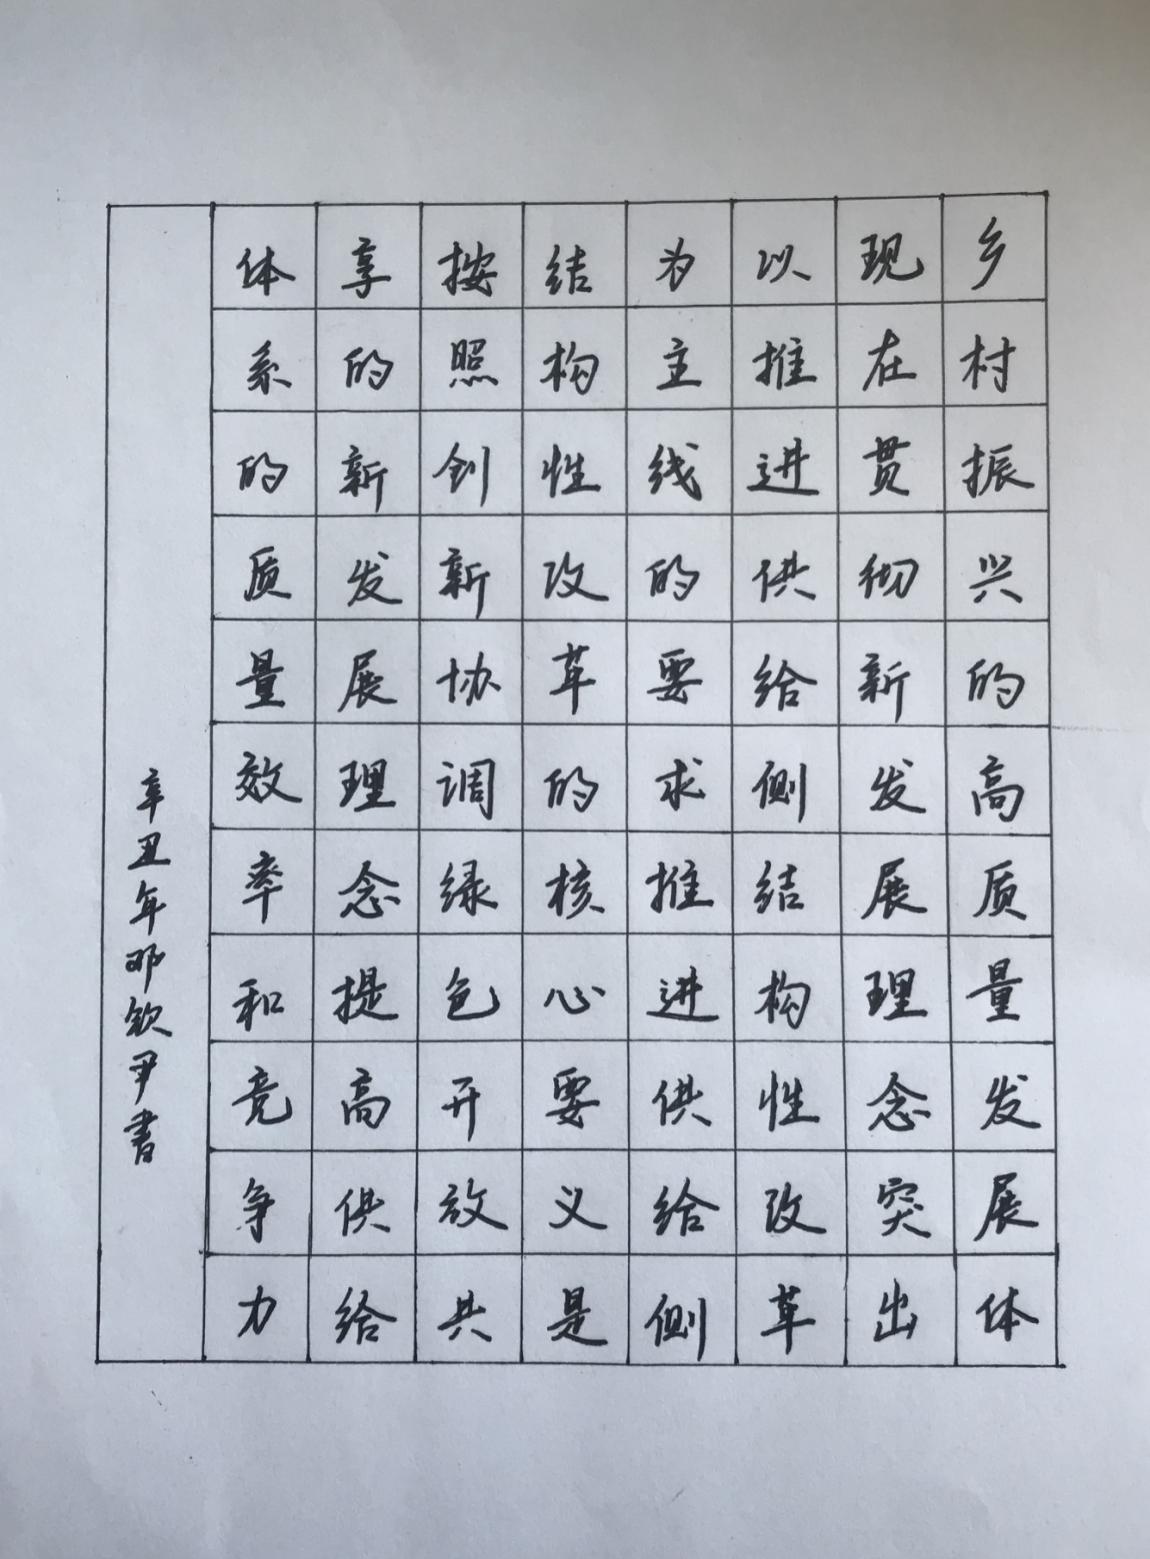 乡村振兴的高质量发展体
现在贯彻新发展理念突出
以推进供给侧结构性改革
为主线的要求推进供给侧
结构性改革的核心要义是
按照创新协调绿色开放共
享的新发展理念提高供给
体系的质量效率和竞争力
辛丑年邓钦尹書